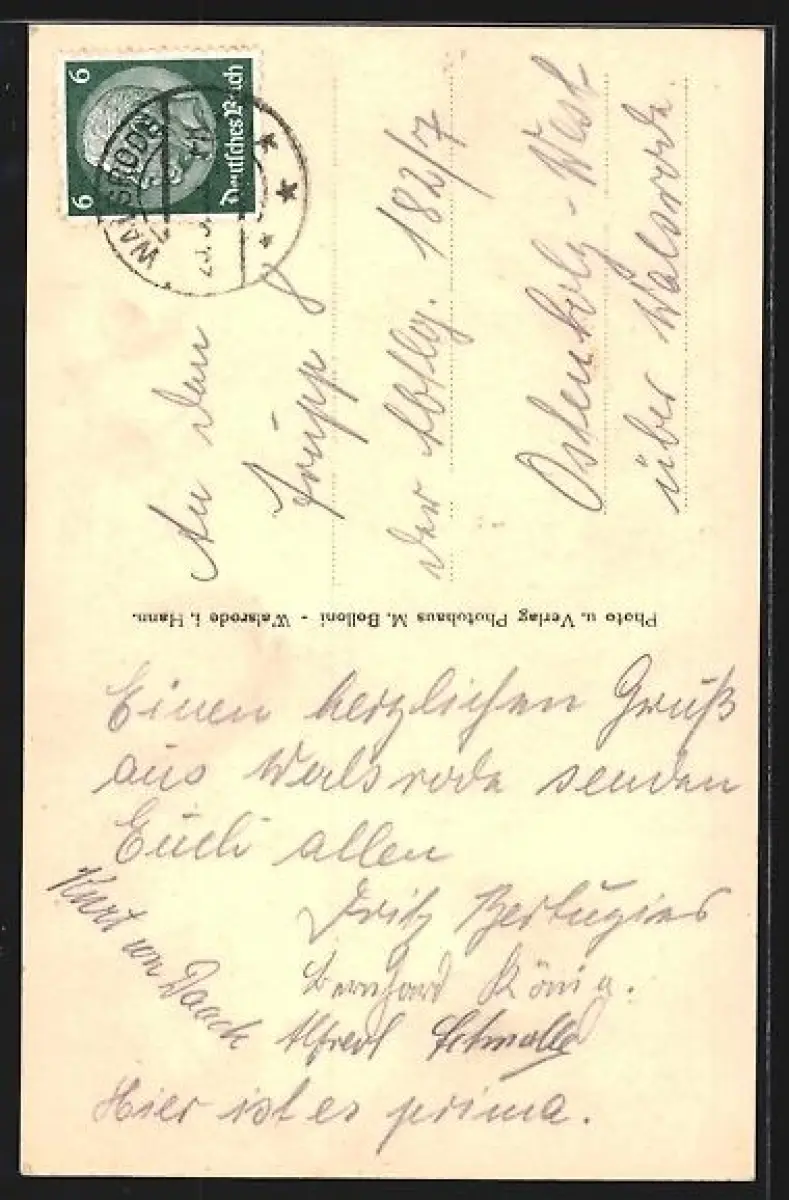 6
6
Deutsches Reich
WALSRODE
An den
Trupp 8
der Abtlg. 182/7
Ostenholz-West
über Walsrode.
Photo u. Verlag Photohaus M. Bolloni - Walsrode i. Hann.
Einen herzlichen Gruß
aus Walsrode senden
Euch allen
Fritz
Bernhard König.
Alfred
Kurt von Daack
Hier ist es prima.